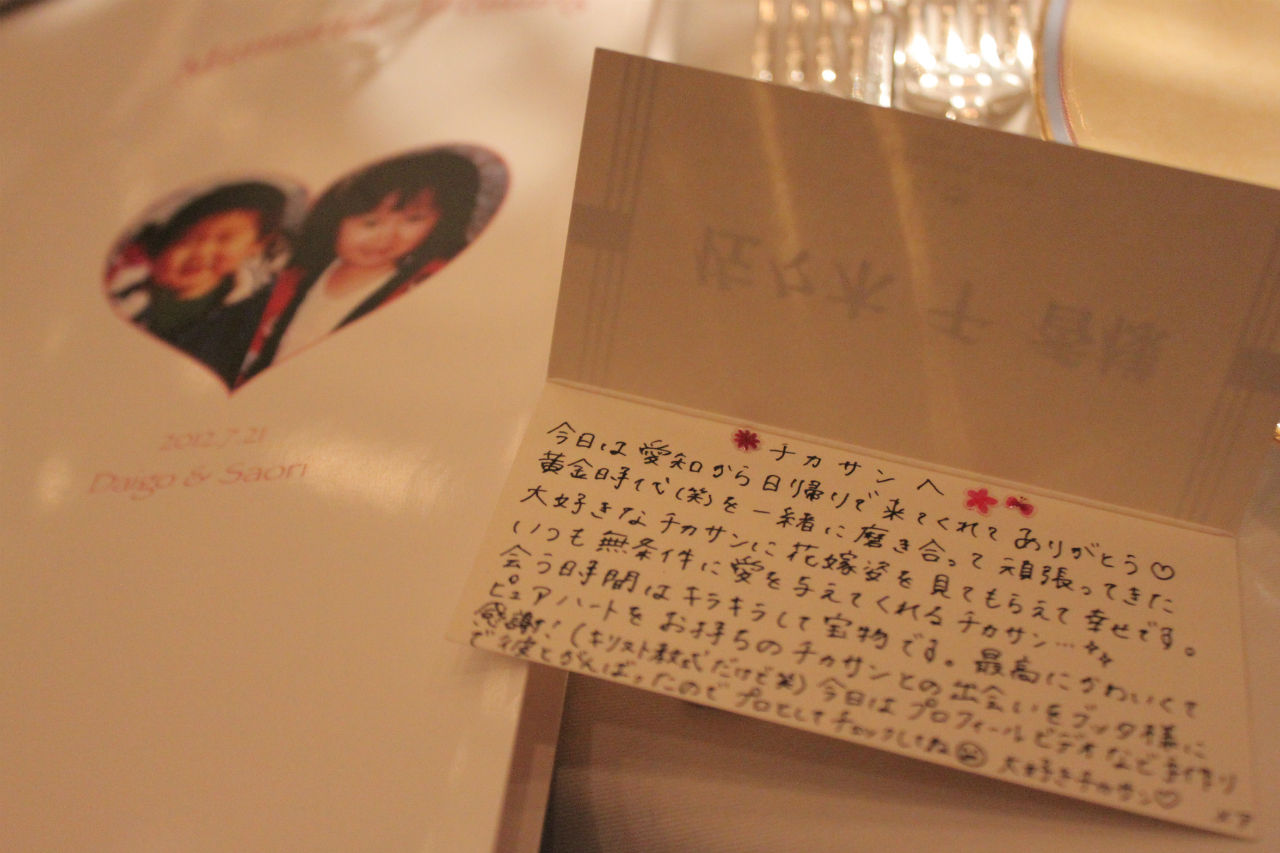 2012.7.21
Daigo & Saori
佐々木 千香
チカサンへ
今日は愛知から日帰りで来てくれてありがとう♡
黄金時代(笑)を一緒に磨き合って頑張ってきた
大好きなチカサンに花嫁姿を見てもらえて幸せです。
いつも無条件に愛を与えてくれるチカサン…
会う時間はキラキラして宝物です。最高にかわいくて
ピュアハートをお持ちのチカサンとの出会いをブッタ様に
感謝!(キリスト教式だけど笑)今日はプロフィールビデオなど手作り
で彼とがんばったのでプロとしてチェックしてね 大好きチカサン♡